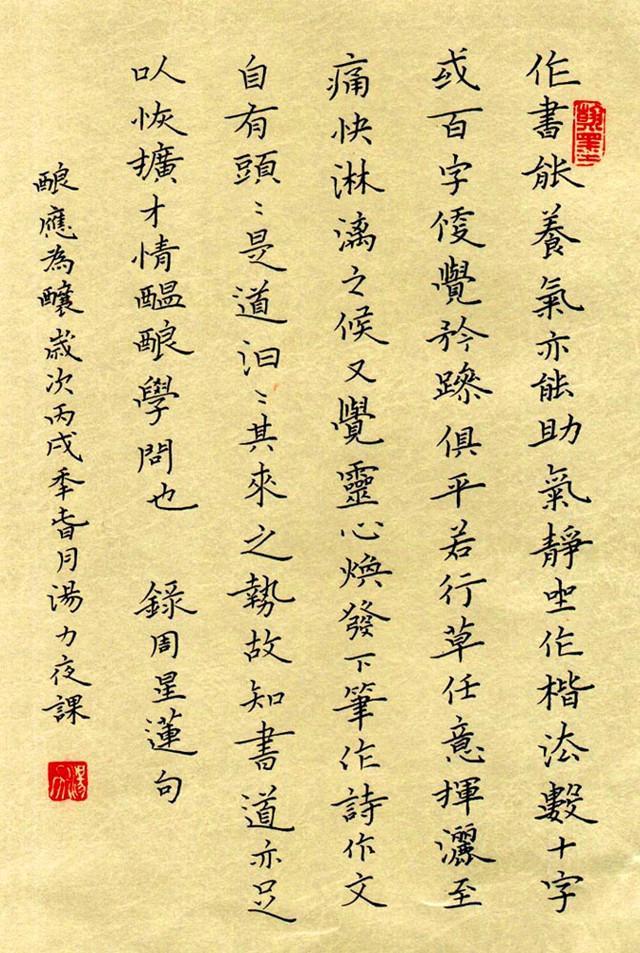 作書能養氣亦能助氣靜坐作楷法數十字
或百字便覺矜躁俱平若行草任意揮灑至
痛快淋漓之候又覺靈心煥發下筆作詩作文
自有頭〻是道汩〻其來之勢故知書道亦足
以恢擴才情醞酿學問也 錄周星蓮句
酿應為釀歲次丙戌秊旾月湯力夜課
湯力